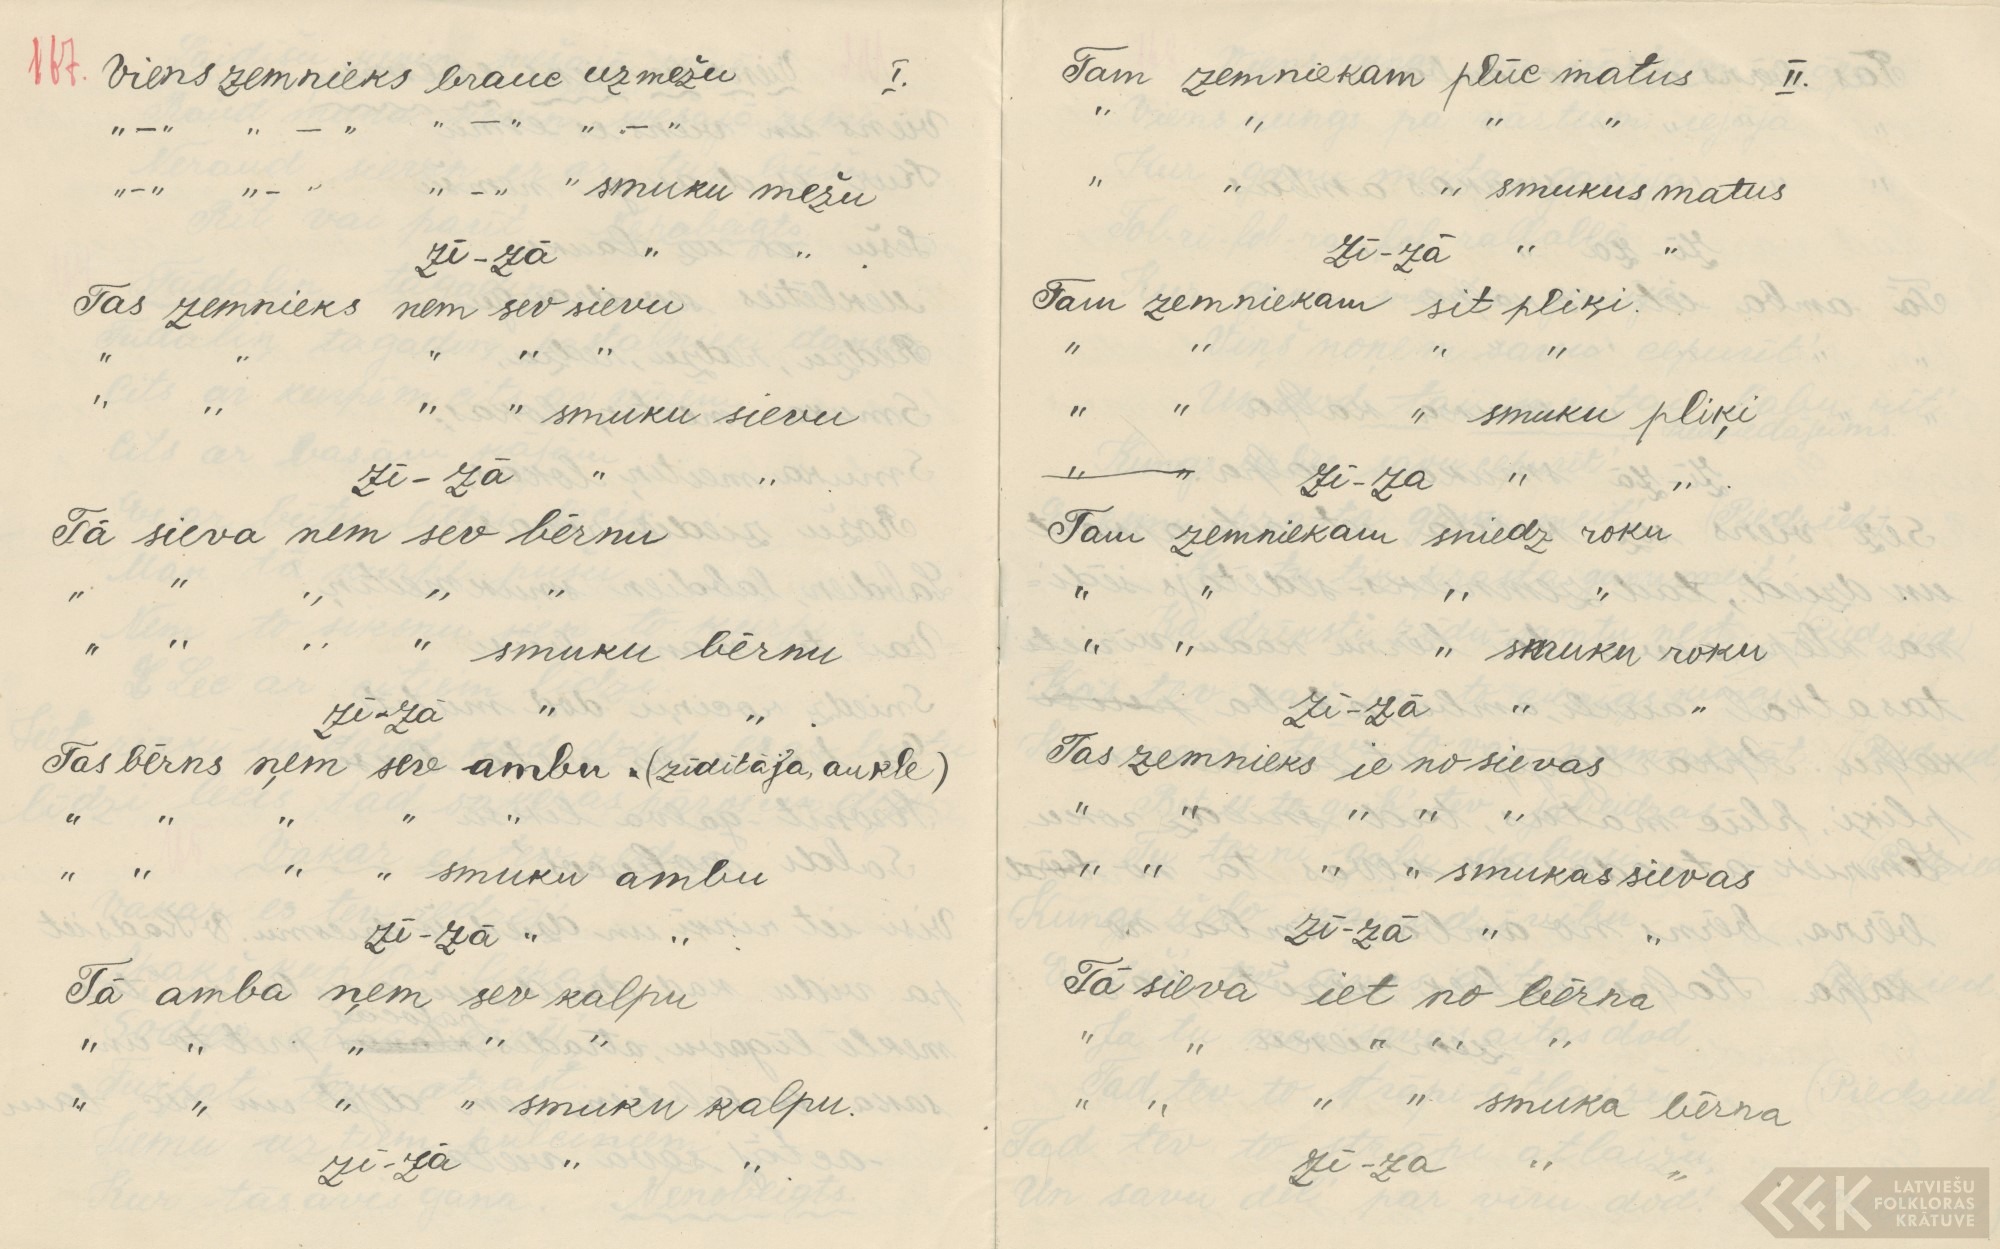 167. Viens zemnieks brauc uz mežu I.
"–" "–" "–" "–"
"–" "–" "–" " smuku mežu
zi-zā " " .
Tas zemnieks nem sev sievu
" " " " "
" " " " smuku sievu
zi-zā " " .
Tā sieva nem sev bērnu
" " " " "
" " " " smuku bērnu
zi-zā " " .
Tas bērns ņem sev ambu. (zīdītāja, aukle)
" " " " "
" " " " smuku ambu
zi-zā " " .
Tā amba ņem sev kalpu
" " " " "
" " " " smuku kalpu.
zi-zā " " .
Tam zemniekam plūc matus II.
" " " "
" " " smukus matus
zi-zā " "
Tam zemniekam sit pliķi.
" " " "
" " " smuku pliķi
" " zi-za " " .
Tam zemniekam sniedz roku
" " " "
" " " smuku roku
zi-zā " "
Tas zemnieks ie no sievas
" " " " "
" " " " smukas sievas
zi-zā " "
Tā sieva iet no bērna
" " " " "
" " " " smuka bērna
zi-za " "
LATVIEŠU
FOLKLORAS
KRĀTUVE